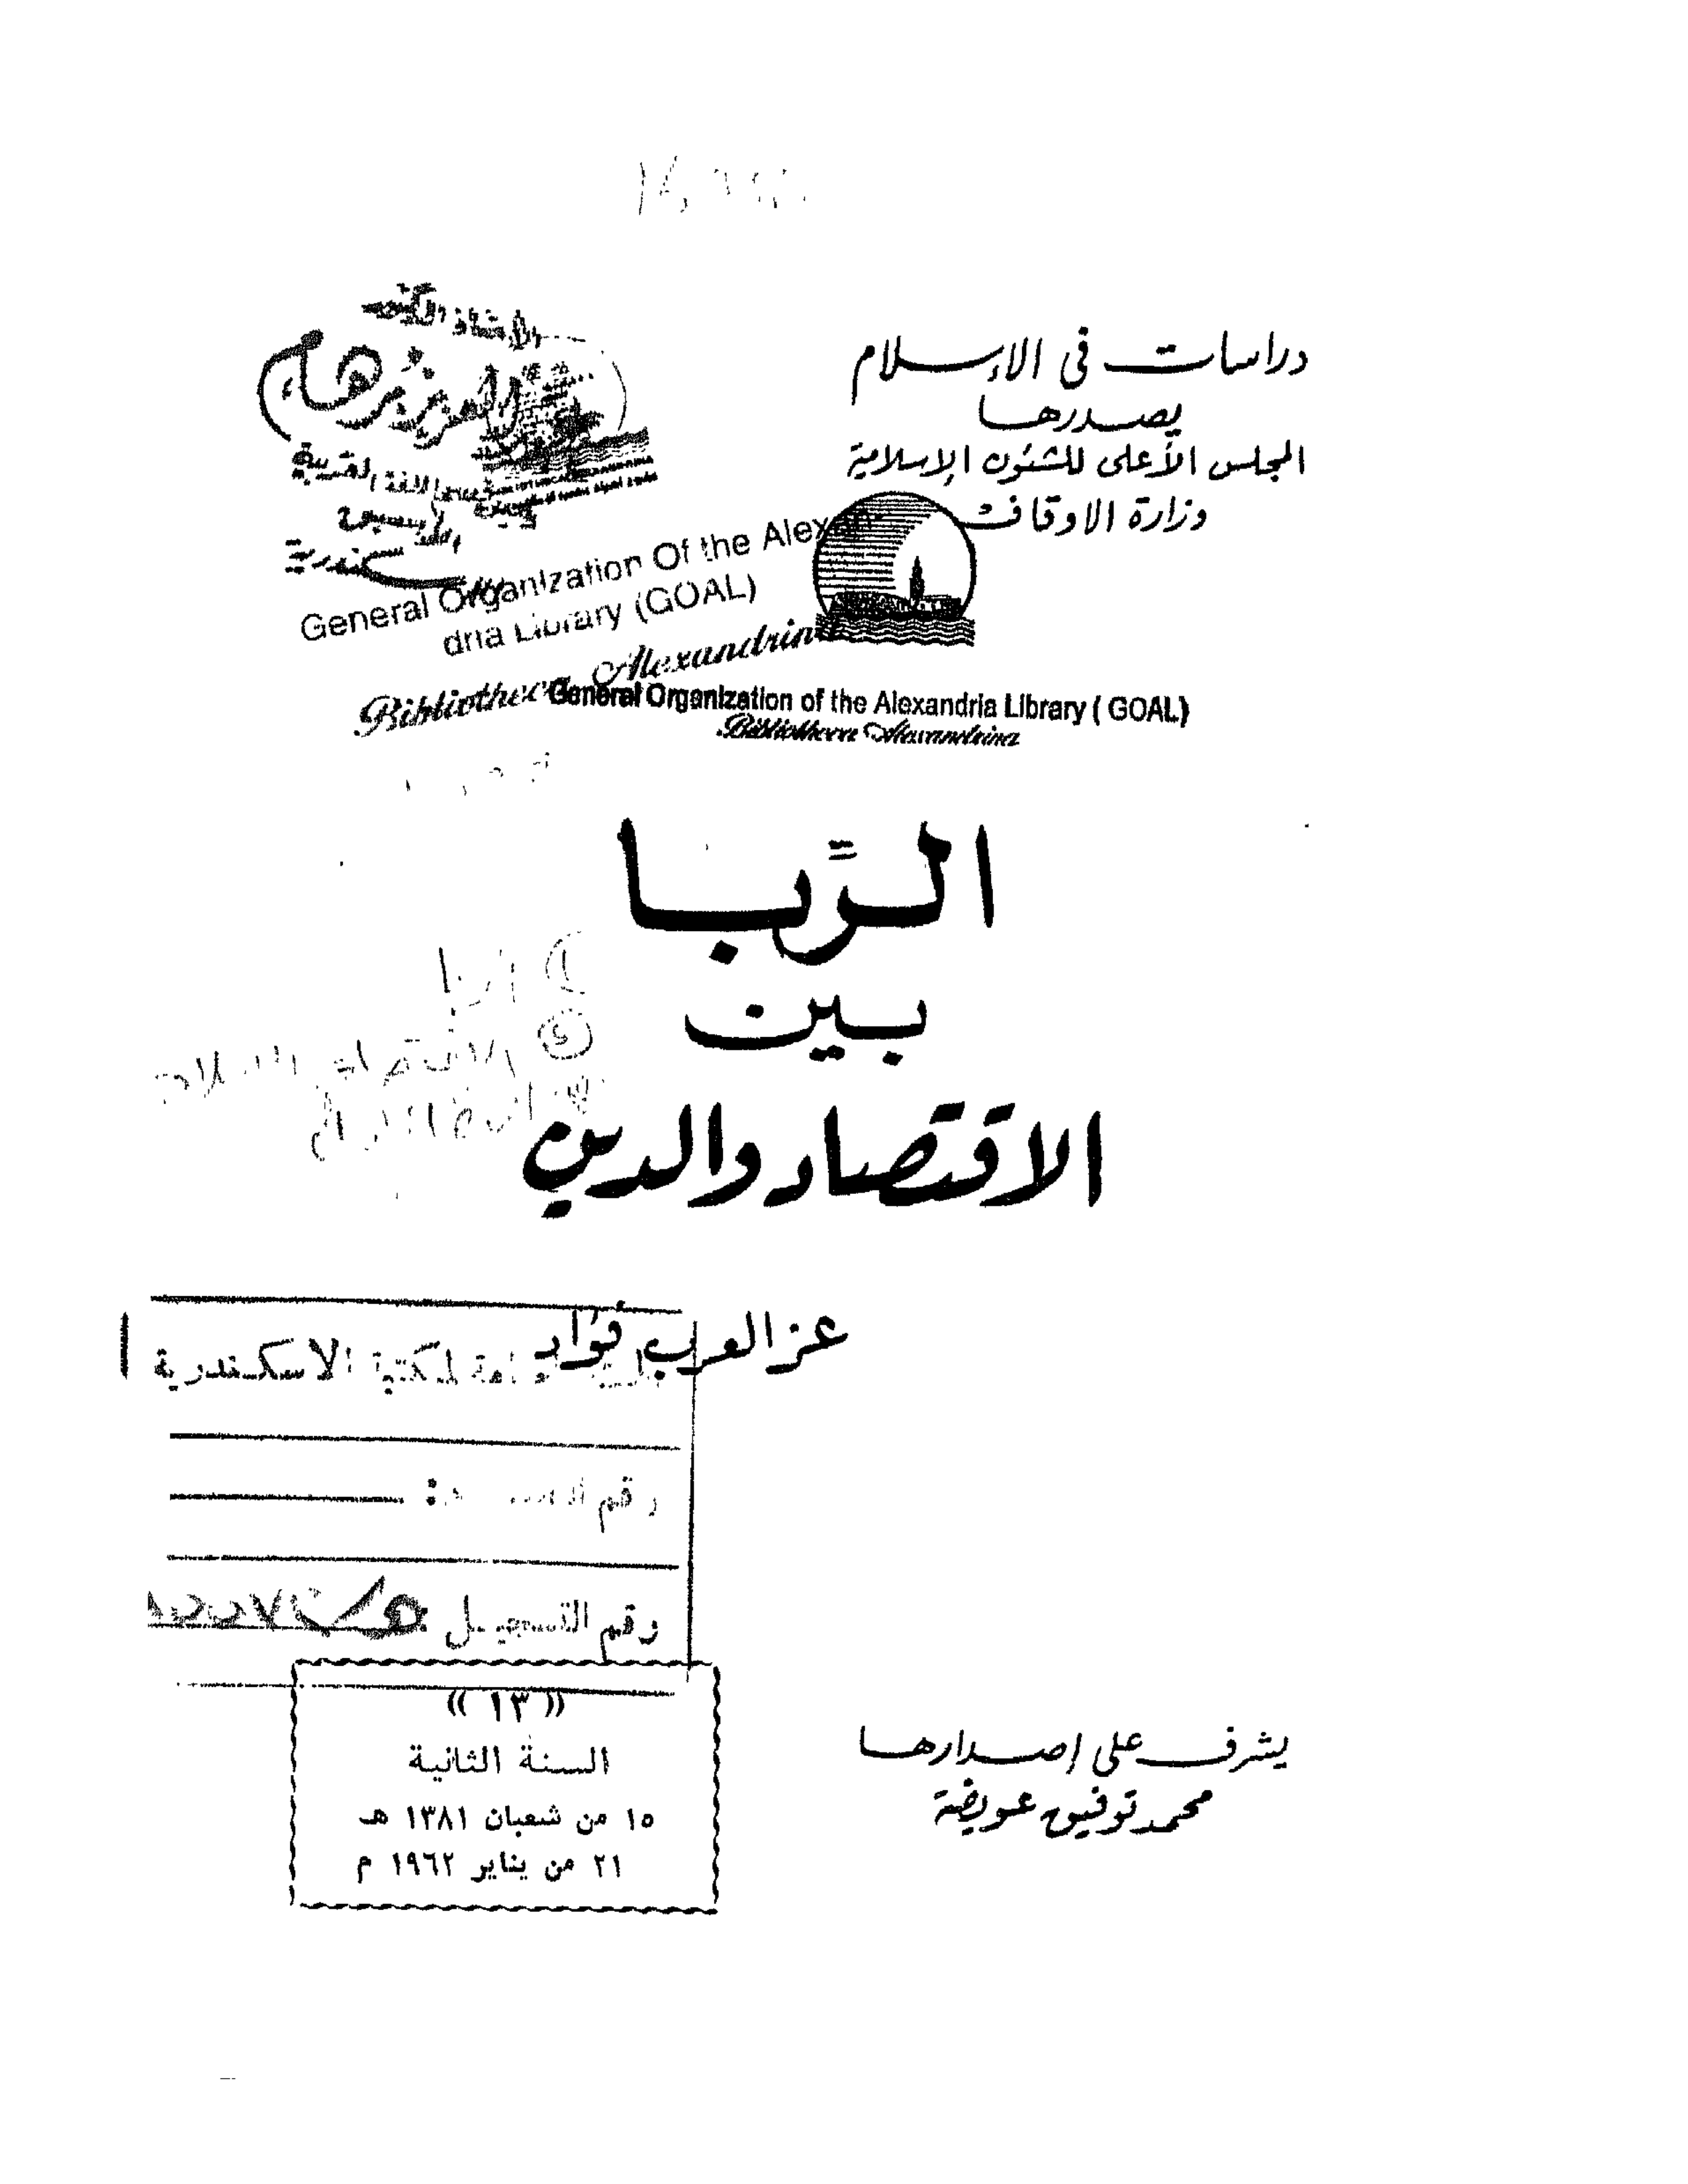 دراسات فى الإسلام
يصدرها
المجلس الأعلى للشئون الإسلامية
وزارة الاوقاف
العزيز برهام
اللغة العربية
General Organization Of the Alexan-
dria Library (GOAL)
Bibliotheca Alexandrina
General Organization of the Alexandria Library ( GOAL )
Bibliotheca Alexandrina
الرّبا
بين
الاقتصاد والدين
عز العرب فؤاد
لمكتبة الاسكندرية
رقم
رقم التسجيل
(( ١٣ ))
السنة الثانية
١٥ من شعبان ١٣٨١ هـ
٢١ من يناير ١٩٦٢ م
يشرف على إصدارها
محمد توفيق عويضة